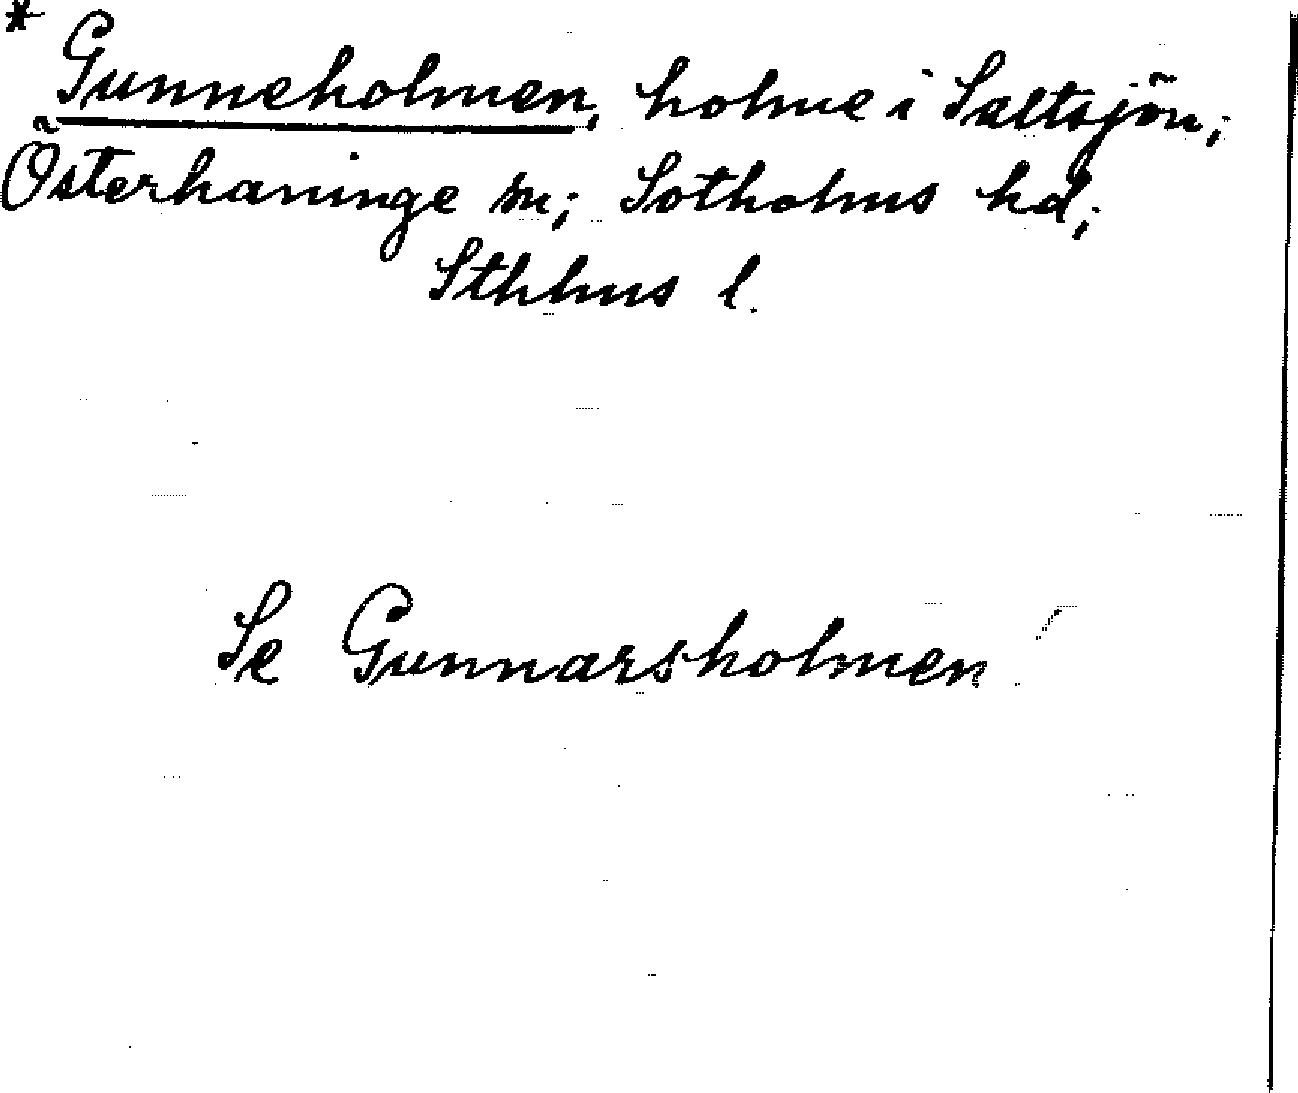 * Gunneholmen, holme i Saltsjön;
Österhaninge sn; Sotholms hd;
Sthlms l.
Se Gunnarsholmen